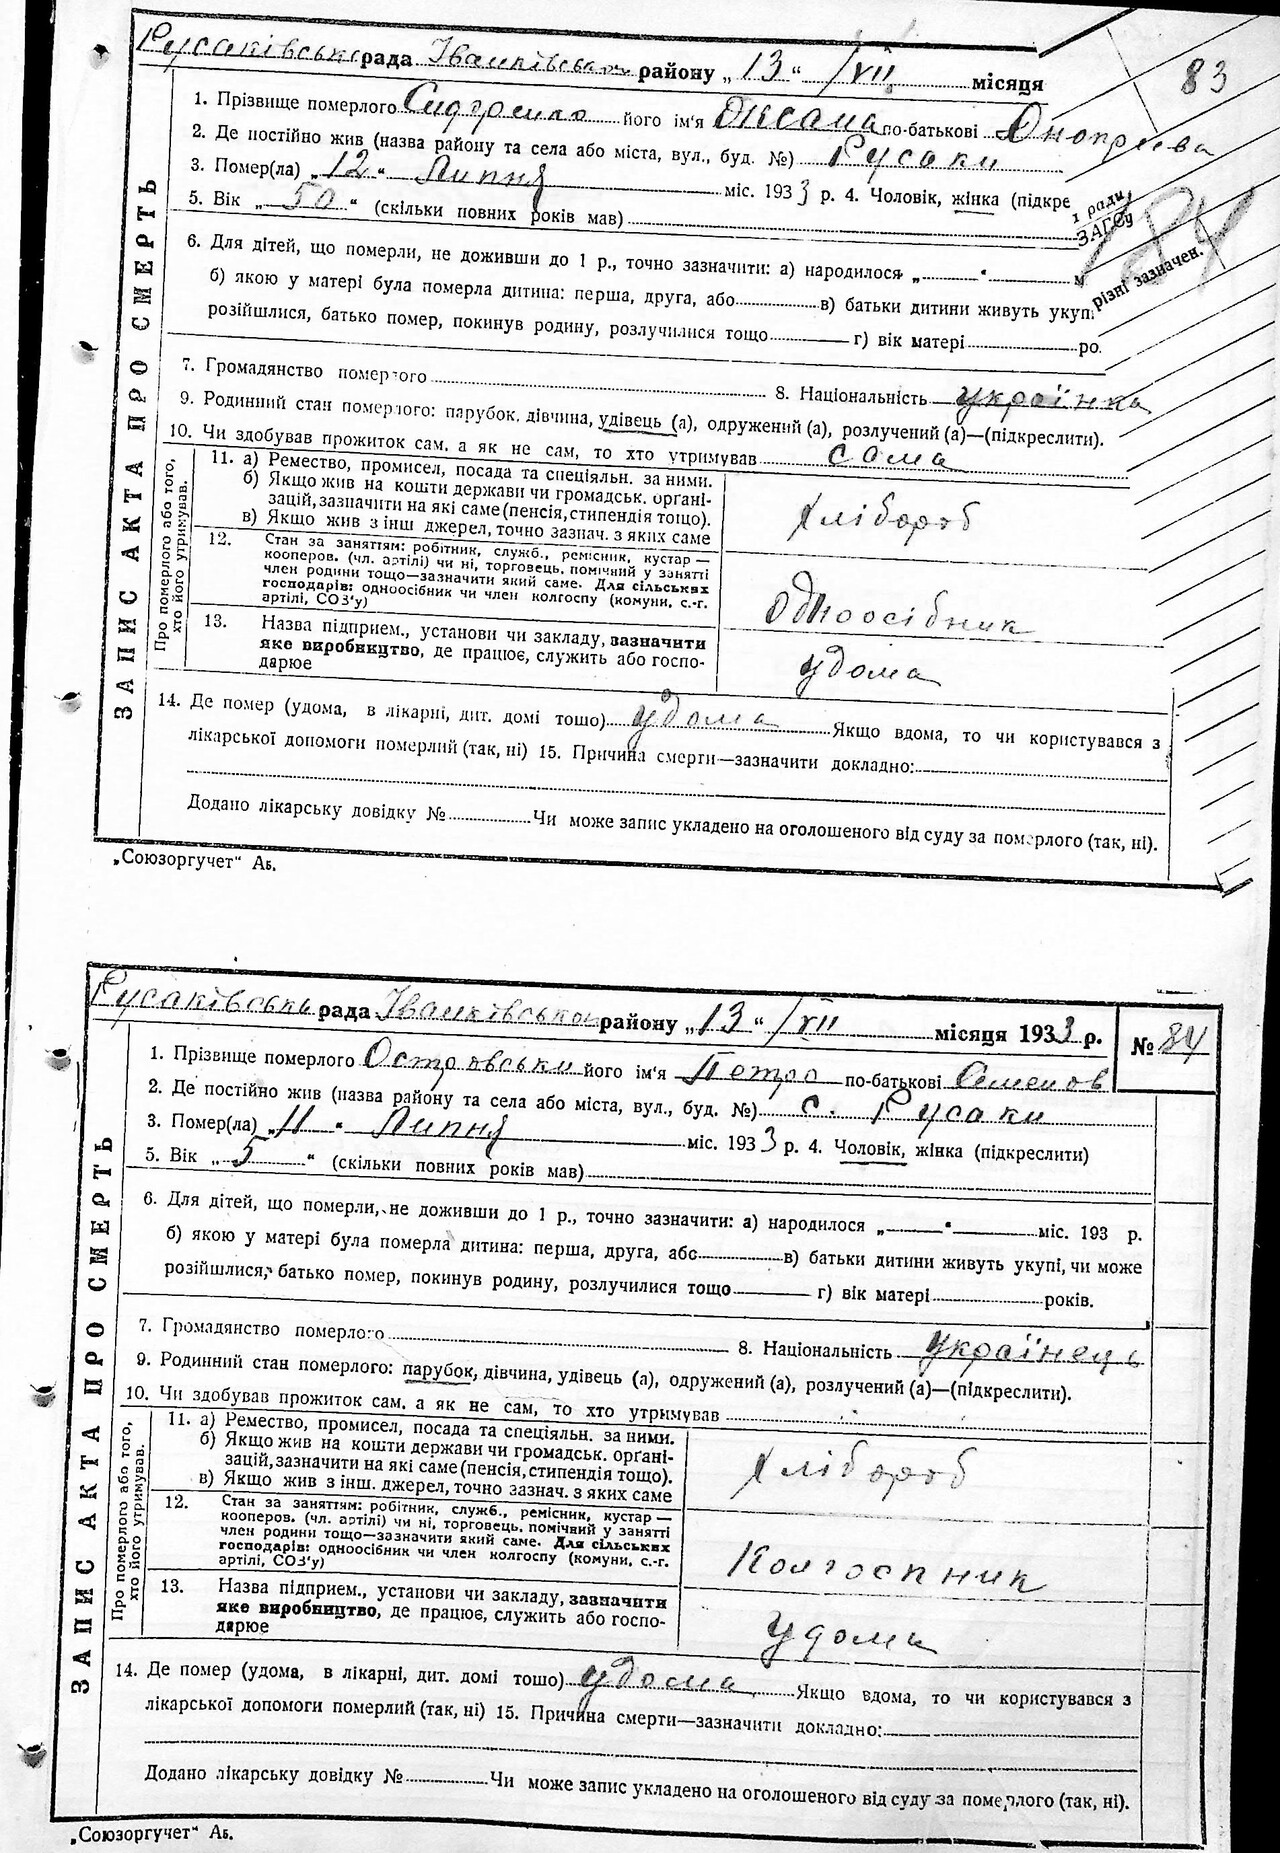 Русаківська рада Іванківського району „13“ /VII місяця
83
1. Прізвище померлого Сидоренко його ім'я Оксана по-батькові Оноприєва
2. Де постійно жив (назва району та села або міста, вул., буд. №) Русаки
3. Помер(ла) „12“ Липня міс. 1933 р. 4. Чоловік, жінка (підкре
5. Вік „50“ (скільки повних років мав)
ради
ЗАГСу
184
різні зазначен.
6. Для дітей, що померли, не доживши до 1 р., точно зазначити: а) народилося „ “ м
б) якою у матері була померла дитина: перша, друга, або в) батьки дитини живуть укупі
розійшлися, батько помер, покинув родину, розлучилися тощо г) вік матері ро.
7. Громадянство померлого 8. Національність українка
9. Родинний стан померлого: парубок, дівчина, удівець (а), одружений (а), розлучений (а)—(підкреслити).
10. Чи здобував прожиток сам, а як не сам, то хто утримував сама
ЗАПИС АКТА ПРО СМЕРТЬ
Про померлого або того, хто його утримував.
11. а) Ремество, промисел, посада та спеціяльн. за ними.
б) Якщо жив на кошти держави чи громадськ. орґані-
зацій, зазначити на які саме (пенсія, стипендія тощо).
в) Якщо жив з інш джерел, точно зазнач. з яких саме
Хлібороб
12. Стан за заняттям: робітник, служб., ремісник, кустар —
кооперов. (чл. артілі) чи ні, торговець, помічний у занятті
член родини тощо—зазначити який саме. Для сільських
господарів: одноосібник чи член колгоспу (комуни, с.-г.
артілі, СОЗ'у)
Одноосібник
13. Назва підприєм., установи чи закладу, зазначити
яке виробництво, де працює, служить або госпо-
дарює
удома
14. Де помер (удома, в лікарні, дит. домі тошо) удома Якщо вдома, то чи користувався з
лікарської допомоги померлий (так, ні) 15. Причина смерти—зазначити докладно:
Додано лікарську довідку № Чи може запис укладено на оголошеного від суду за померлого (так, ні).
„Союзоргучет“ Аб.
Русаківська рада Іванківського району „13“ /VII місяця 1933 р.
№ 84
1. Прізвище померлого Островськи його ім'я Петро по-батькові Семенов
2. Де постійно жив (назва району та села або міста, вул., буд. №) с. Русаки
3. Помер(ла) „11“ Липня міс. 1933 р. 4. Чоловік, жінка (підкреслити)
5. Вік „5“ (скільки повних років мав)
6. Для дітей, що померли, не доживши до 1 р., точно зазначити: а) народилося „ “ міс. 193 р.
б) якою у матері була померла дитина: перша, друга, абс в) батьки дитини живуть укупі, чи може
розійшлися, батько помер, покинув родину, розлучилися тощо г) вік матері років.
7. Громадянство померлого 8. Національність українець
9. Родинний стан померлого: парубок, дівчина, удівець (а), одружений (а), розлучений (а)—(підкреслити).
10. Чи здобував прожиток сам, а як не сам, то хто утримував
ЗАПИС АКТА ПРО СМЕРТЬ
Про померлого або того, хто його утримував.
11. а) Ремество, промисел, посада та спеціяльн. за ними.
б) Якщо жив на кошти держави чи громадськ. орґані-
зацій, зазначити на які саме (пенсія, стипендія тощо).
в) Якщо жив з інш. джерел, точно зазнач. з яких саме
Хлібороб
12. Стан за заняттям: робітник, служб., ремісник, кустар —
кооперов. (чл. артілі) чи ні, торговець, помічний у занятті
член родини тощо—зазначити який саме. Для сільських
господарів: одноосібник чи член колгоспу (комуни, с.-г.
артілі, СОЗ'у)
Колгоспник
13. Назва підприєм., установи чи закладу, зазначити
яке виробництво, де працює, служить або госпо-
дарює
удома
14. Де помер (удома, в лікарні, дит. домі тошо) удома Якщо вдома, то чи користувався з
лікарської допомоги померлий (так, ні) 15. Причина смерти—зазначити докладно:
Додано лікарську довідку № Чи може запис укладено на оголошеного від суду за померлого (так, ні).
„Союзоргучет“ Аб.